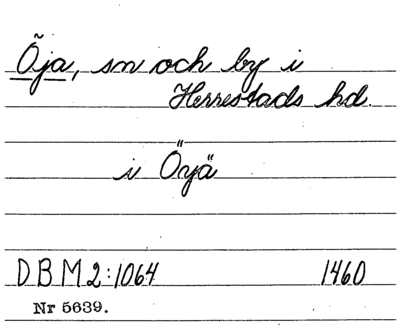 Öja, sn och by i
Herrestads hd.
i Öyä
DBM 2:1064 1460
Nr 5639.